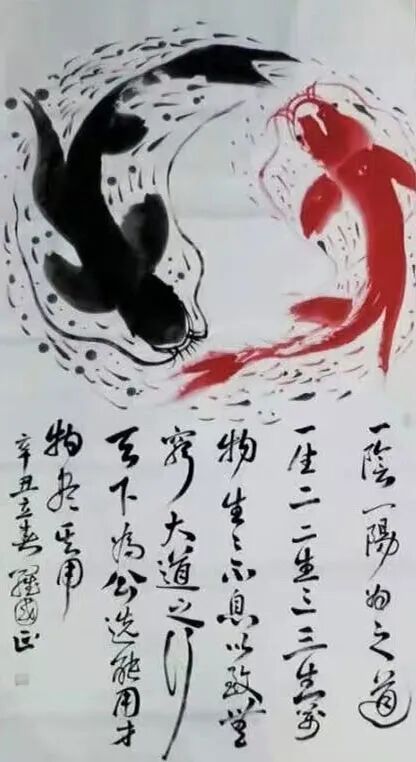 一陰一陽为之道
一生二二生三三生萬
物生々不息以致無
窮大道之行
天下為公选能用才
物尽其用
辛丑立春 羅國正